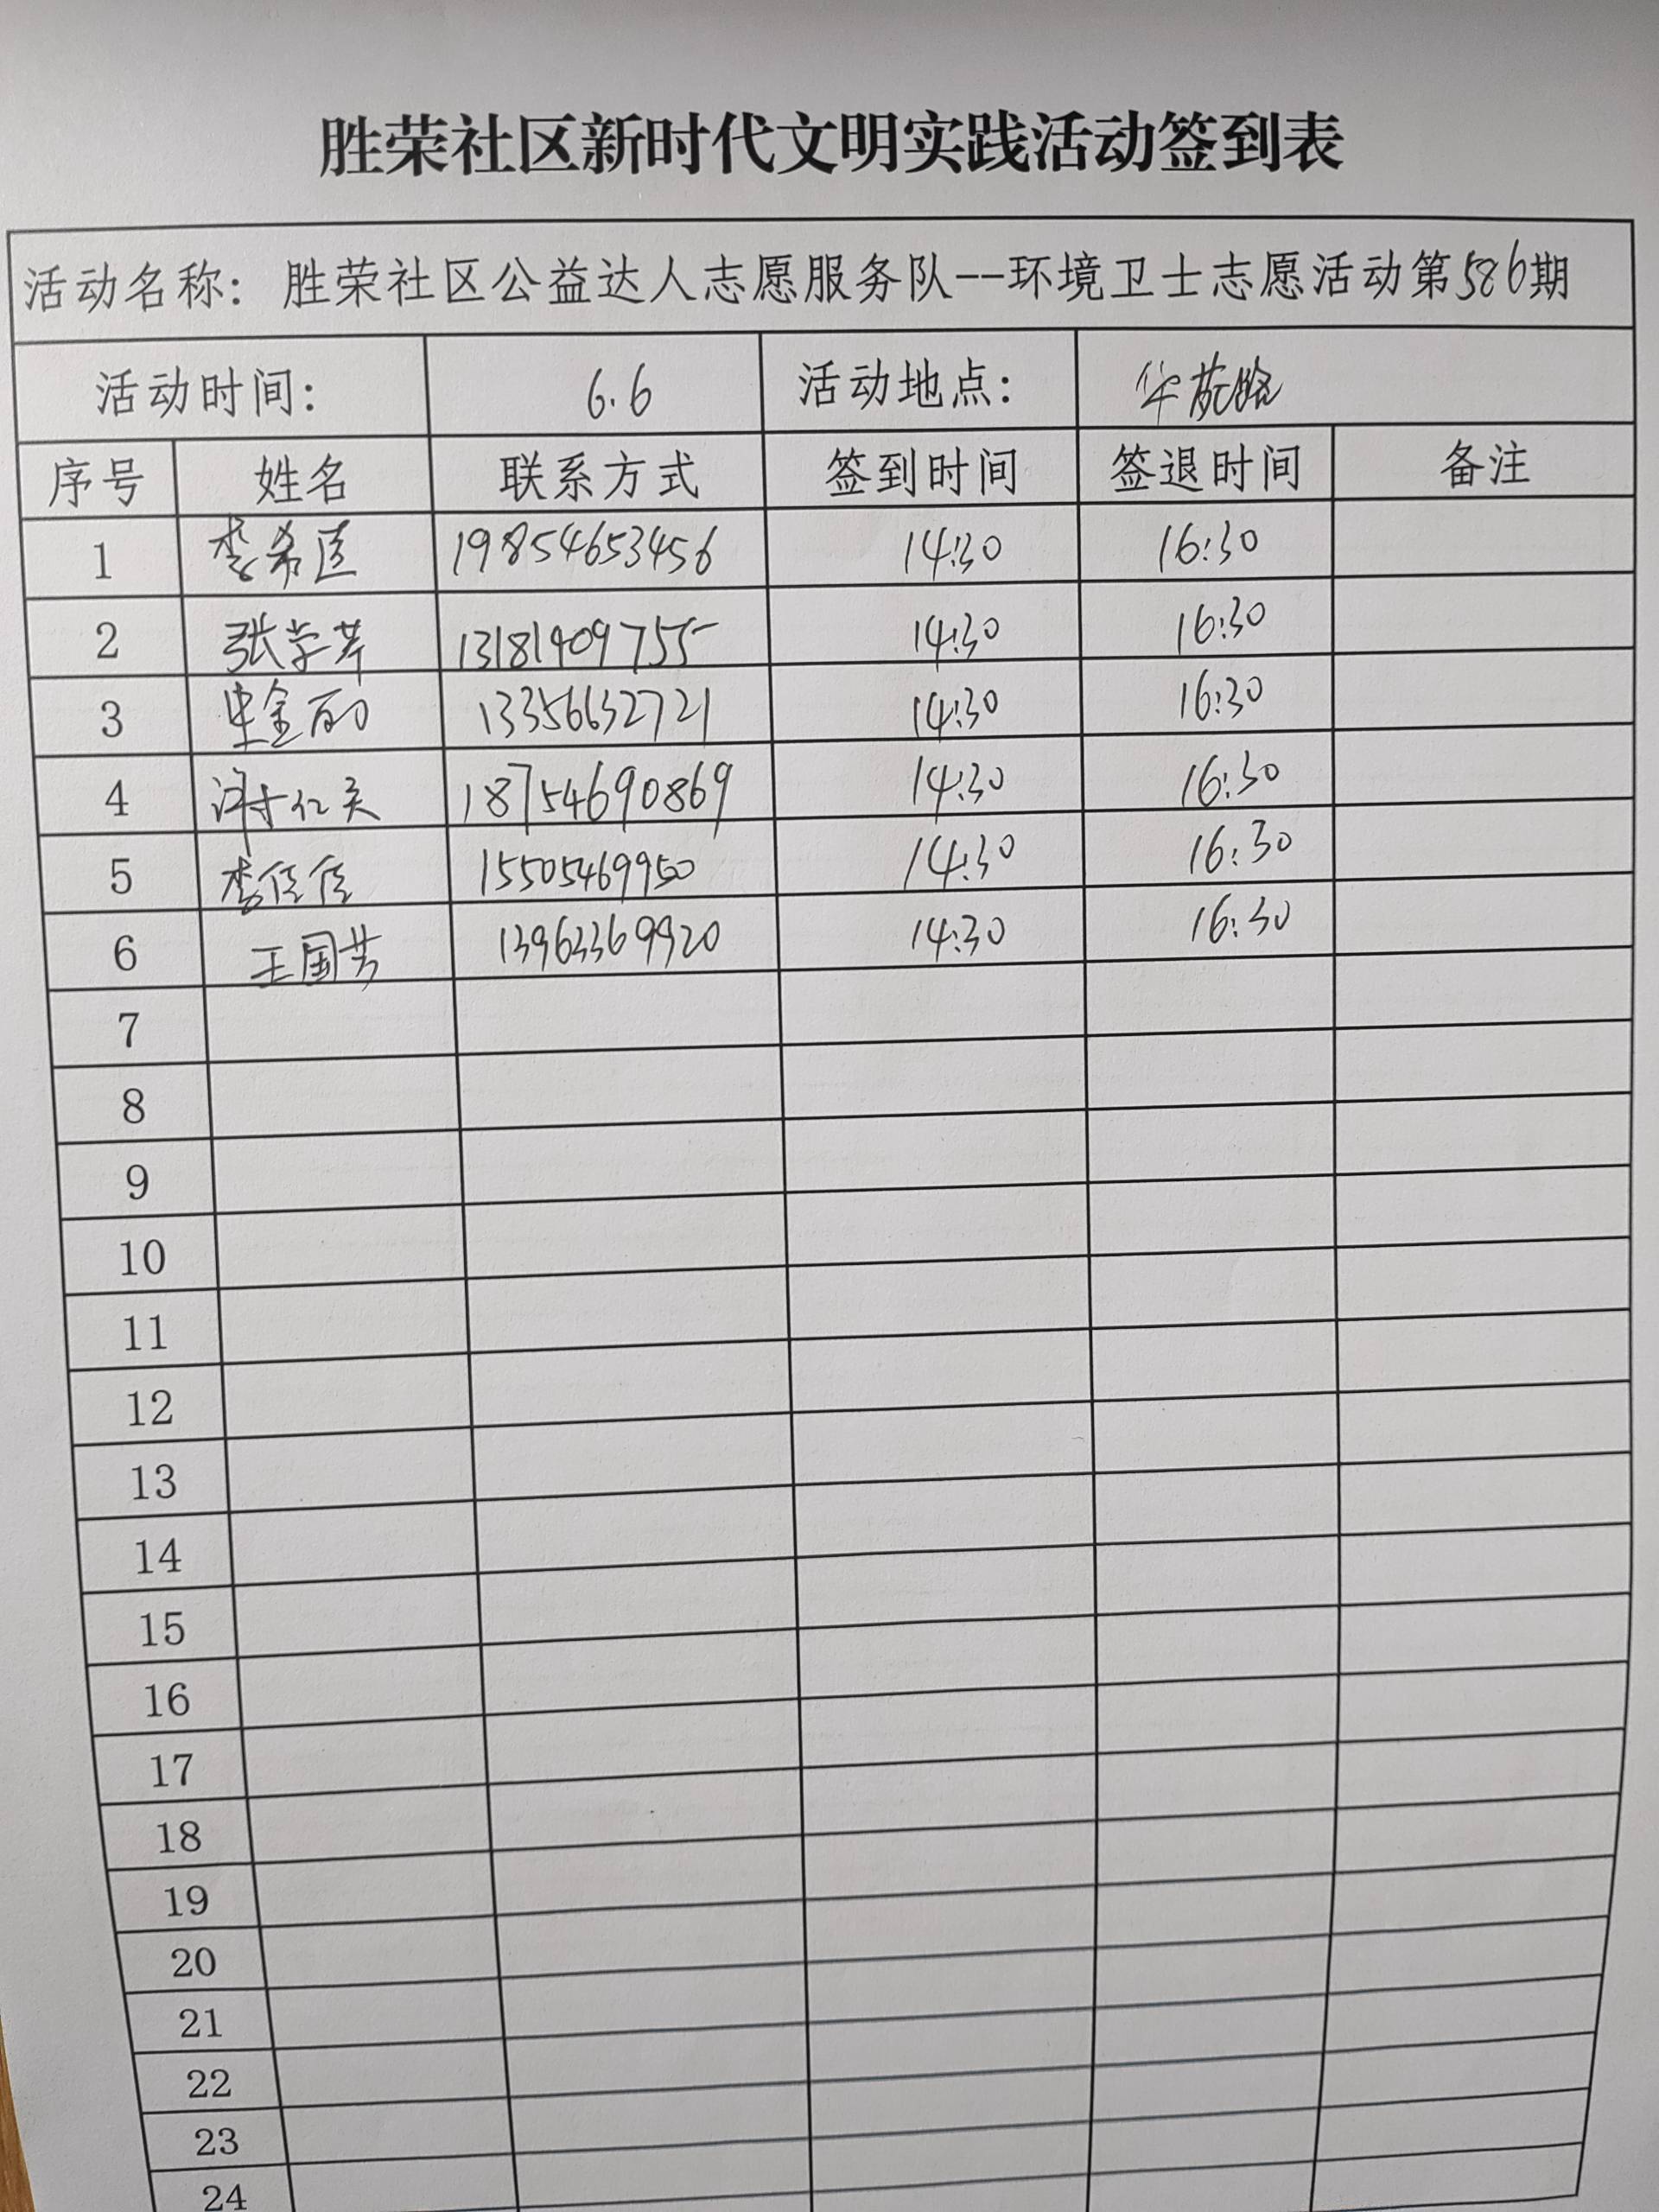 胜荣社区新时代文明实践活动签到表
活动名称：胜荣社区公益达人志愿服务队--环境卫士志愿活动第586期
活动时间： 6.6 活动地点： 华苑路
序号 姓名 联系方式 签到时间 签退时间 备注
1 李希 19854653456 14:30 16:30
2 张学芹 13181909755 14:30 16:30
3 金 13356632721 14:30 16:30
4 18754690869 14:30 16:30
5 李佳佳 15505469950 14:30 16:30
6 王国芳 13963369920 14:30 16:30
7
8
9
10
11
12
13
14
15
16
17
18
19
20
21
22
23
24